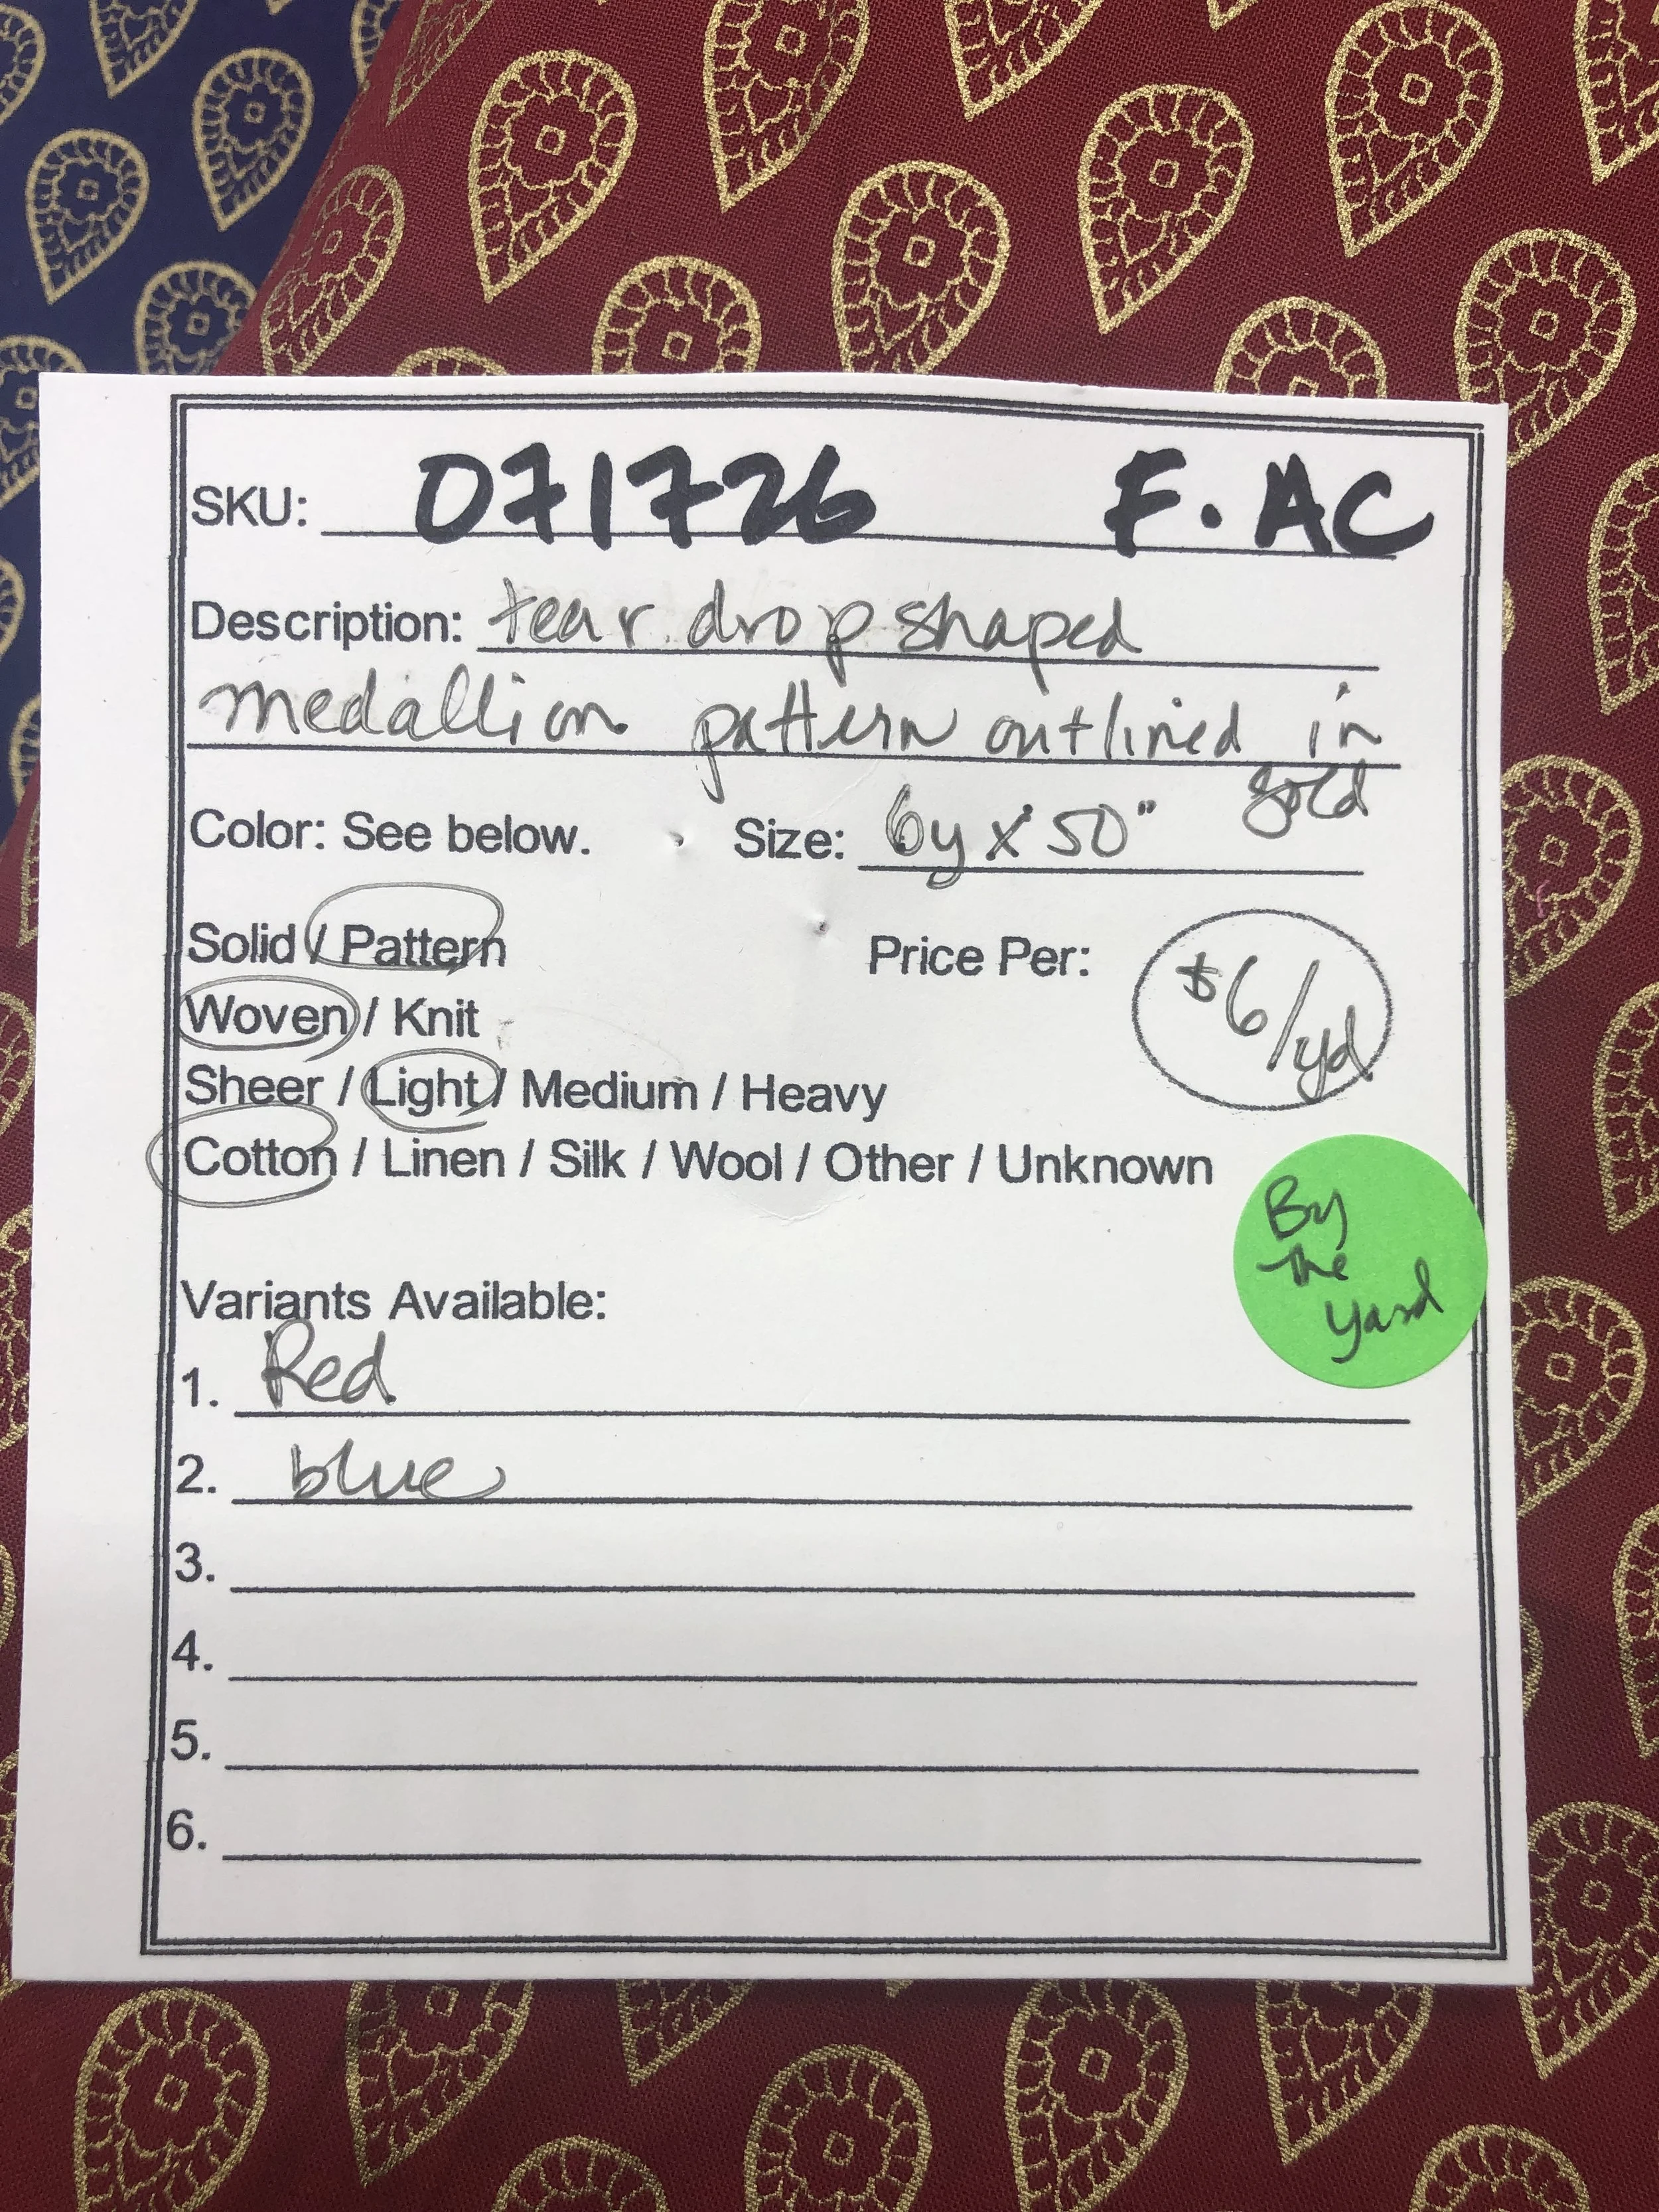 SKU: 071726 F.AC
Description: tear drop shaped
medallion pattern outlined in
gold
Color: See below. Size: 6y x 50"
Solid / Pattern Price Per: $6/yd
Woven / Knit
Sheer / Light / Medium / Heavy
Cotton / Linen / Silk / Wool / Other / Unknown
By
the
yard
Variants Available:
1. Red
2. blue
3.
4.
5.
6.